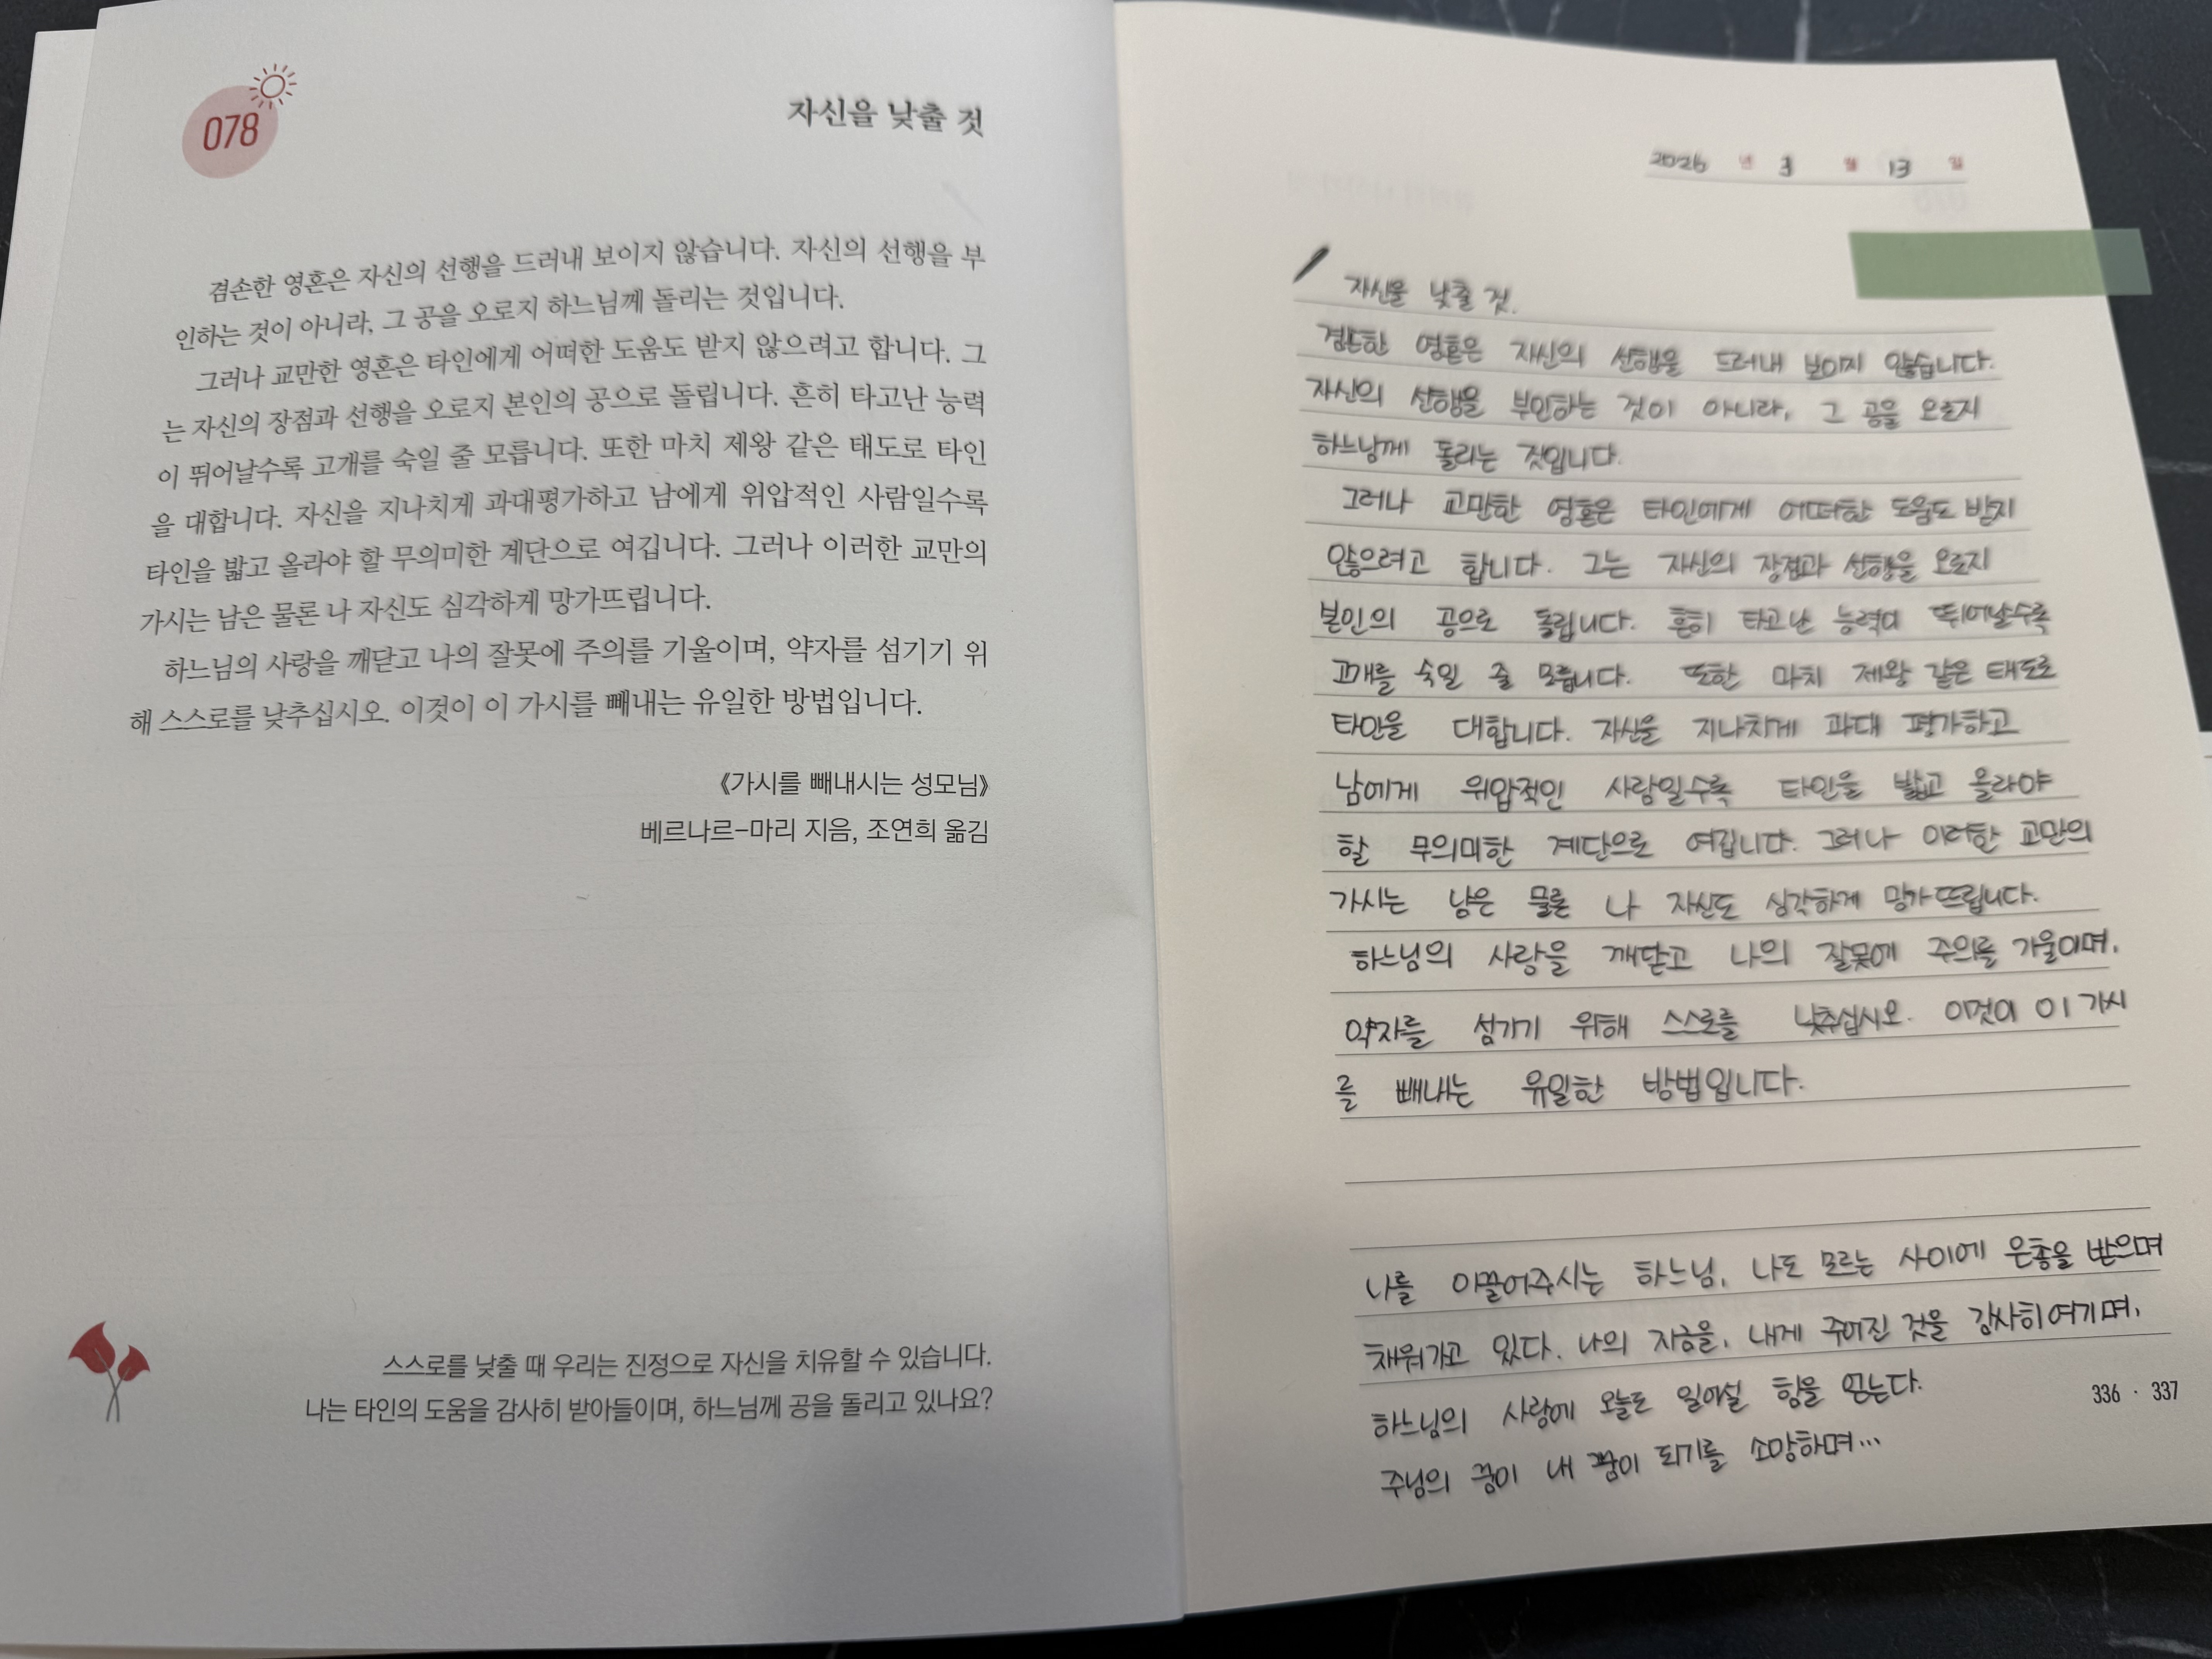 078
자신을 낮출 것
겸손한 영혼은 자신의 선행을 드러내 보이지 않습니다. 자신의 선행을 부
인하는 것이 아니라, 그 공을 오로지 하느님께 돌리는 것입니다.
그러나 교만한 영혼은 타인에게 어떠한 도움도 받지 않으려고 합니다. 그
는 자신의 장점과 선행을 오로지 본인의 공으로 돌립니다. 흔히 타고난 능력
이 뛰어날수록 고개를 숙일 줄 모릅니다. 또한 마치 제왕 같은 태도로 타인
을 대합니다. 자신을 지나치게 과대평가하고 남에게 위압적인 사람일수록
타인을 밟고 올라야 할 무의미한 계단으로 여깁니다. 그러나 이러한 교만의
가시는 남은 물론 나 자신도 심각하게 망가뜨립니다.
하느님의 사랑을 깨닫고 나의 잘못에 주의를 기울이며, 약자를 섬기기 위
해 스스로를 낮추십시오. 이것이 이 가시를 빼내는 유일한 방법입니다.
《가시를 빼내시는 성모님》
베르나르-마리 지음, 조연희 옮김
스스로를 낮출 때 우리는 진정으로 자신을 치유할 수 있습니다.
나는 타인의 도움을 감사히 받아들이며, 하느님께 공을 돌리고 있나요?
2026 년 3 월 13 일
자신을 낮출 것.
겸손한 영혼은 자신의 선행을 드러내 보이지 않습니다.
자신의 선행을 부인하는 것이 아니라, 그 공을 오로지
하느님께 돌리는 것입니다.
그러나 교만한 영혼은 타인에게 어떠한 도움도 받지
않으려고 합니다. 그는 자신의 장점과 선행을 오로지
본인의 공으로 돌립니다. 흔히 타고난 능력이 뛰어날수록
고개를 숙일 줄 모릅니다. 또한 마치 제왕 같은 태도로
타인을 대합니다. 자신을 지나치게 과대 평가하고
남에게 위압적인 사람일수록 타인을 밟고 올라야
할 무의미한 계단으로 여깁니다. 그러나 이러한 교만의
가시는 남은 물론 나 자신도 심각하게 망가뜨립니다.
하느님의 사랑을 깨닫고 나의 잘못에 주의를 기울이며,
약자를 섬기기 위해 스스로를 낮추십시오. 이것이 이 가시
를 빼내는 유일한 방법입니다.
나를 이끌어주시는 하느님, 나도 모르는 사이에 은총을 받으며
채워가고 있다. 나의 지금을, 내게 주어진 것을 감사히여기며,
하느님의 사랑에 오늘도 일어설 힘을 얻는다.
주님의 꿈이 내 꿈이 되기를 소망하며...
336 · 337